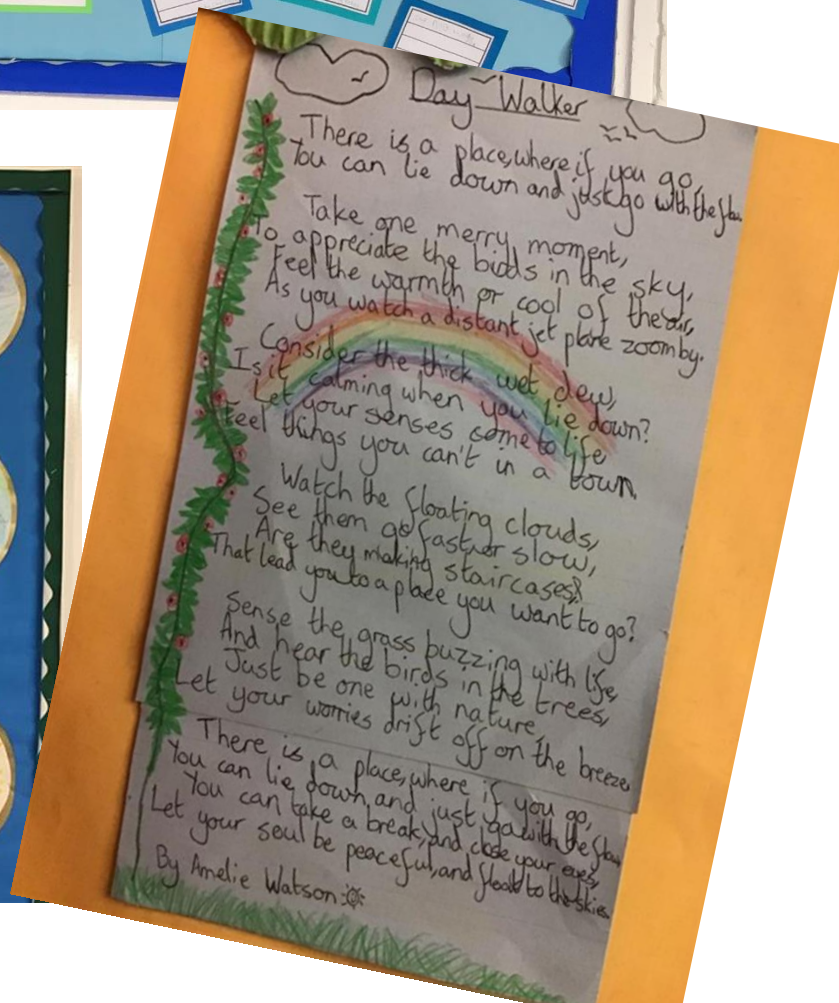 Day Walker
There is a place, where if you go,
You can lie down and just go with the flow.
Take one merry moment,
To appreciate the birds in the sky,
Feel the warmth or cool of the air,
As you watch a distant jet plane zoom by.
Consider the thick wet dew,
Is it calming when you lie down?
Let your senses come to life
Feel things you can't in a town.
Watch the floating clouds,
See them go faster or slow,
Are they making staircases?
That lead you to a place you want to go?
Sense the grass buzzing with life,
And hear the birds in the trees,
Just be one with nature,
Let your worries drift off on the breeze.
There is a place, where if you go,
You can lie down, and just go with the flow
You can take a break, and close your eyes,
Let your soul be peaceful, and float to the skies.
By Amelie Watson